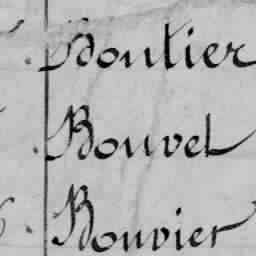 Boutier
Bouvet
Bouvier